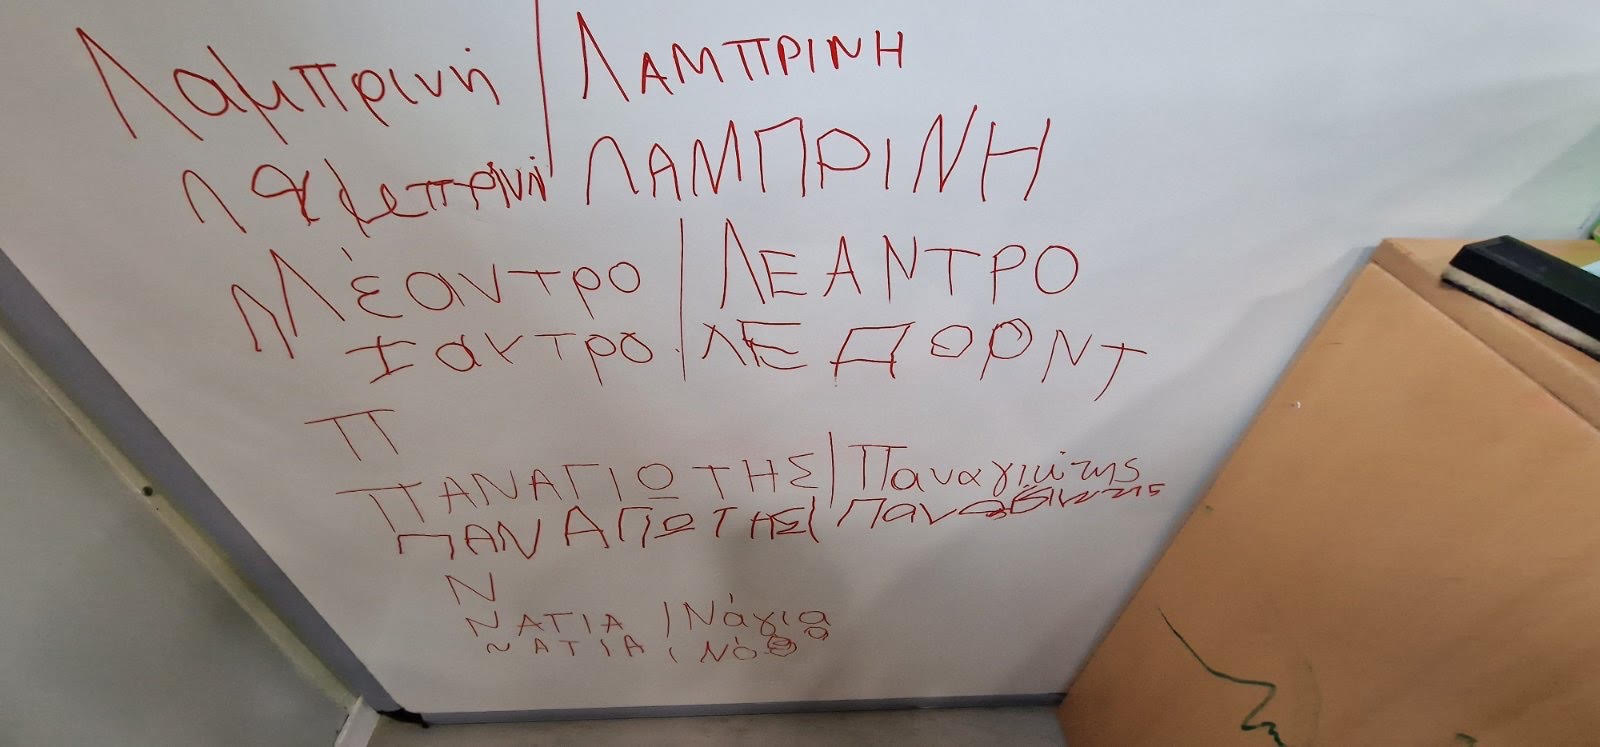 Λαμπρινή / ΛΑΜΠΡΙΝΗ
λαμπρινή ΛΑΜΠΡΙΝΗ
Λέαντρο / ΛΕΑΝΤΡΟ
αντρο / ΛΕΔΟΡΝΤ
Π
ΠΑΝΑΓΙΩΤΗΣ / Παναγιώτης
ΠΑΝΑΓΙΩΤΗΣ /
Ν
ΝΑΓΙΑ / Νάγια
ΝΑΤΙΑ /